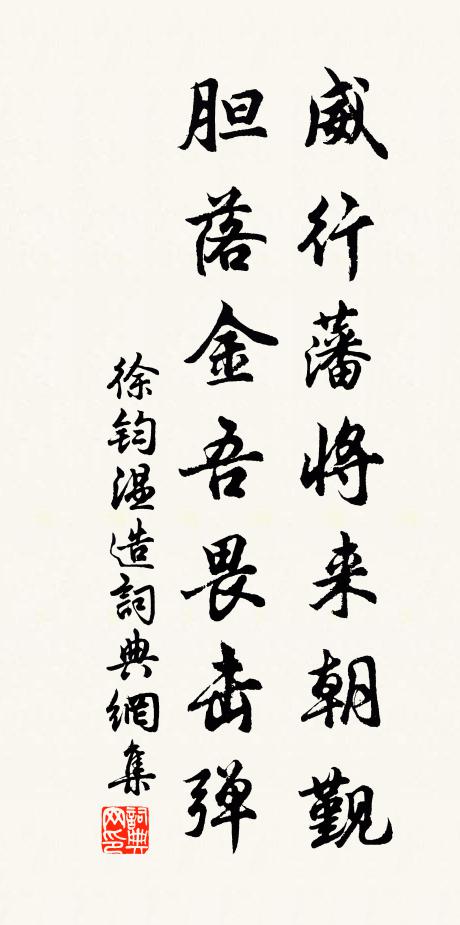 威行藩将来朝觐
胆落金吾畏击弹
徐钧温造詞典網集
詞典网印